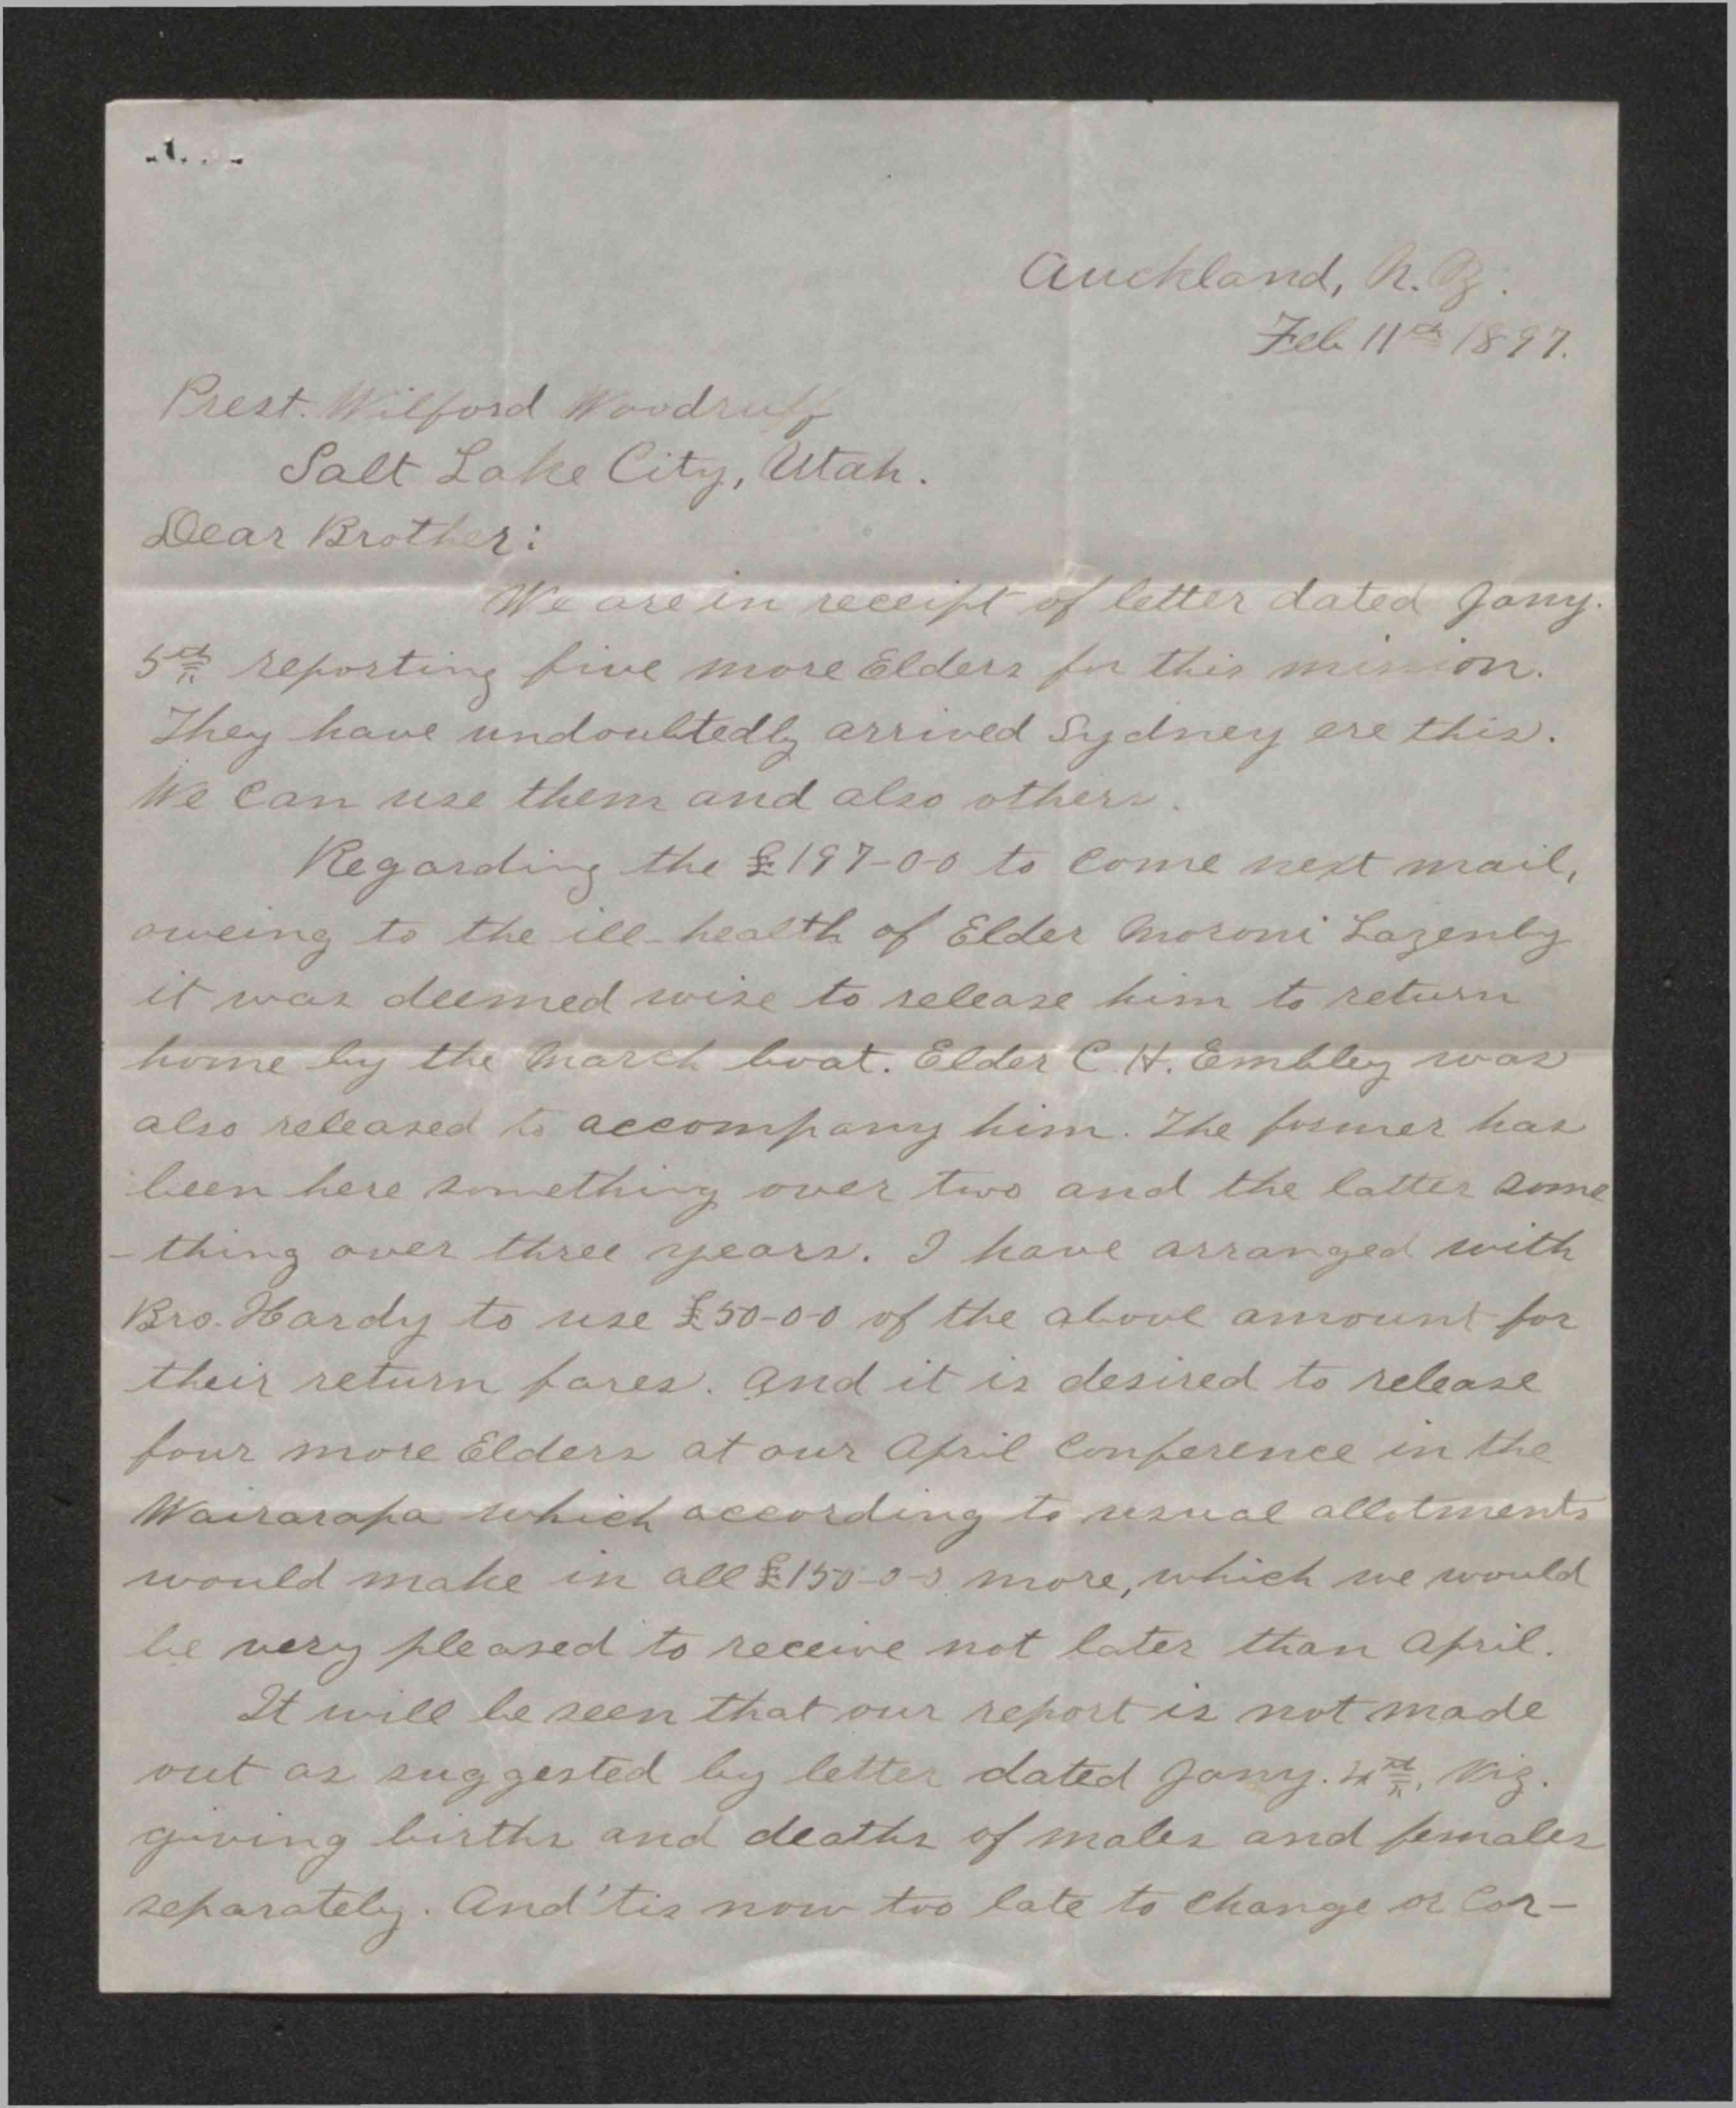 Auckland, N. Z.
Feb 11th 1897.
Prest. Wilford Woodruff
Salt Lake City, Utah.
Dear Brother:
We are in receipt of letter dated Jany.
5th reporting five more Elders for this mission.
They have undoubtedly arrived Sydney ere this.
We can use them and also others.
Regarding the £197-0-0 to come next mail,
oweing to the ill-health of Elder Moroni Lazenby
it was deemed wise to release him to return
home by the March boat. Elder C. H. Embley was
also released to accompany him. The former has
been here something over two and the latter some
-thing over three years. I have arranged with
Bro. Hardy to use £50-0-0 of the above amount for
their return fares. And it is desired to release
four more Elders at our April Conference in the
Wairarapa which according to usual allotments
would make in all £150-0-0 more, which we would
be very pleased to receive not later than April.
It will be seen that our report is not made
out as suggested by letter dated Jany. 4th, viz.
giving births and deaths of males and females
separately. And 'tis now too late to change or cor-